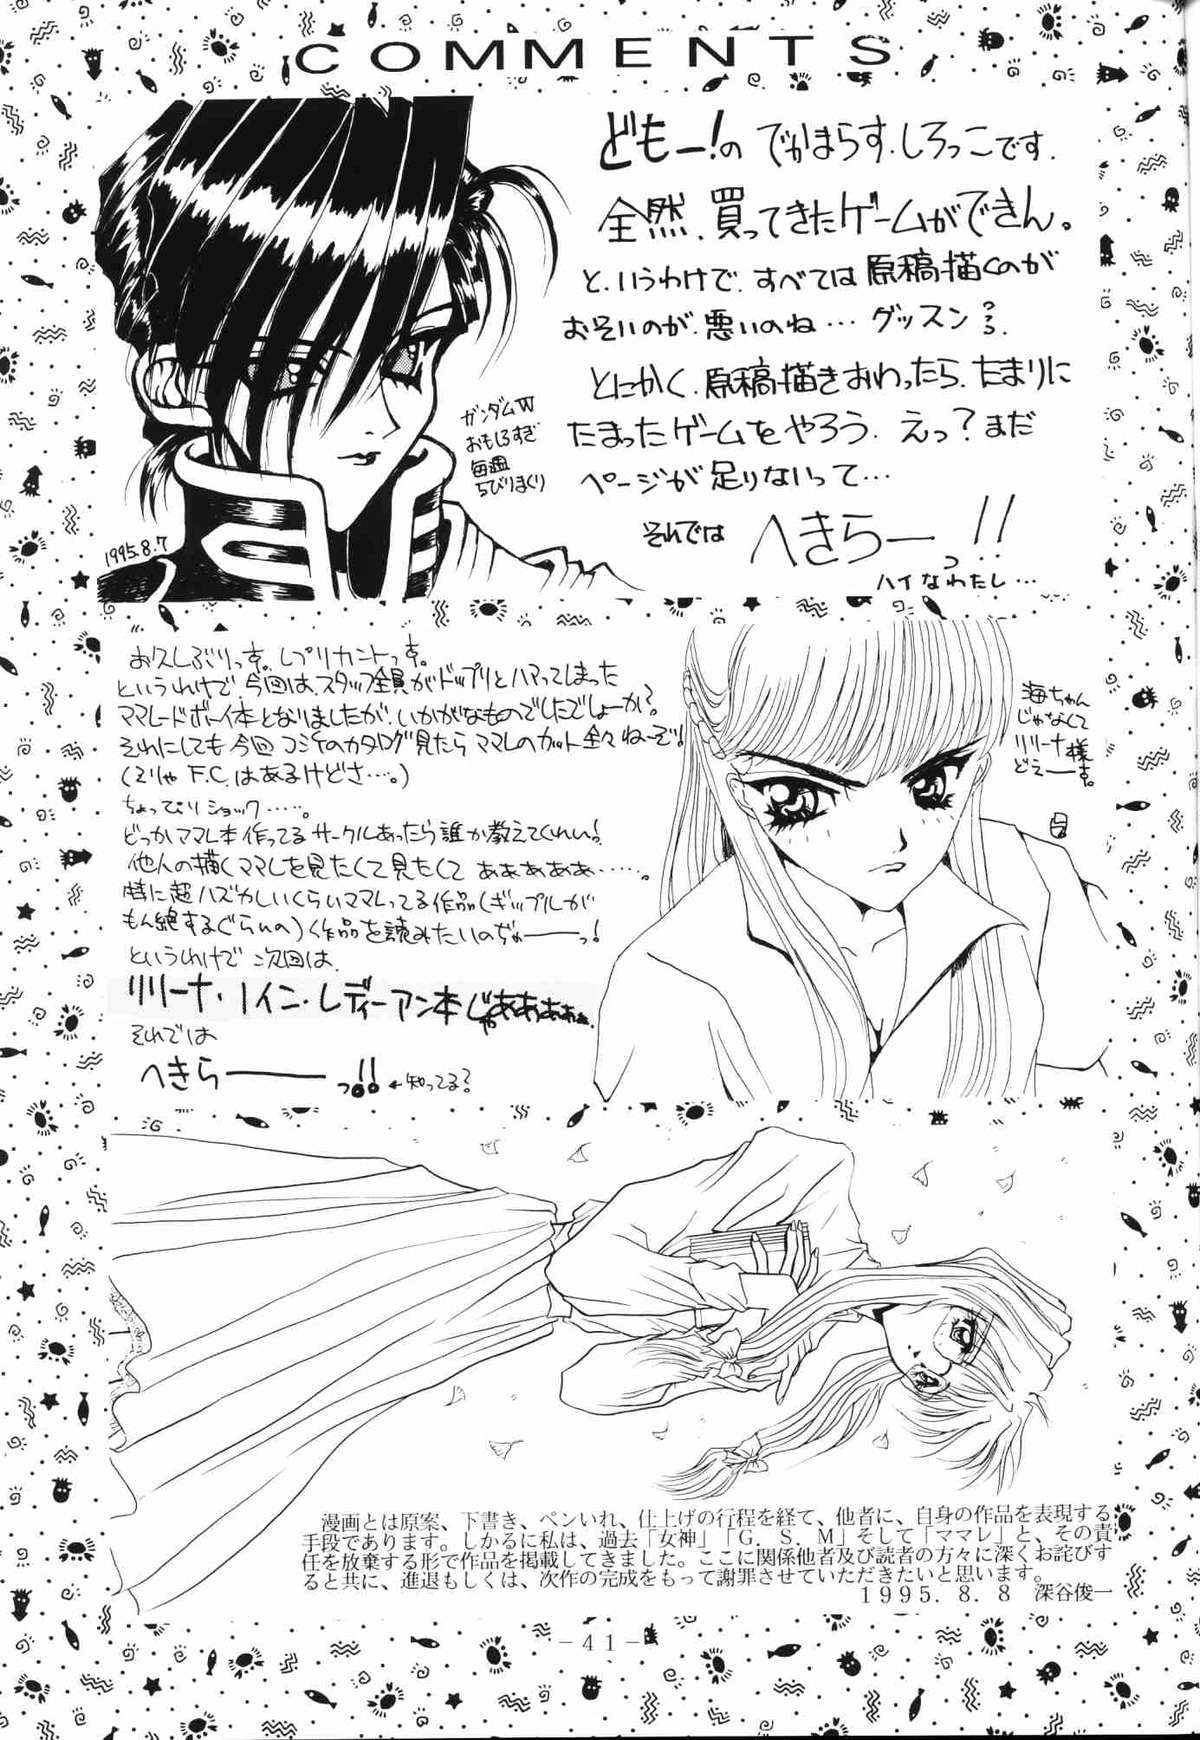 COMMENTS
どもー!の でかまらす.しろっこです.
全然.買ってきたゲームができん。
と.いうわけで.すべては原稿描くのが
おそいのが.悪いのね… グッスン
とにかく.原稿描きおわったら.たまりに
たまったゲームをやろう.えっ?まだ
ページが足りないって…
それでは へきらーっ!!
ハイなわたし…
ガンダムW
おもしろすぎ
毎週
ちびりまくり
1995.8.7
お久しぶりっす。レプリカントっす。
というわけで今回は、スタッフ全員がドップリとハマってしまった
ママレードボーイ本となりましたが、いかがなものでしたでしょーか?
それにしても今回コミケのカタログ見たらママレのカット全々ねーぞ!
(そりゃF.C.はあるけどさ…。)
ちょっぴりショック……。
どっかママレ本作ってるサークルあったら誰か教えてくれい!
他人の描くママレを見たくて見たくてああああああ……。
特に超ハズかしいくらいママレってる作品(ギップルが
もん絶するぐらいの)作品を読みたいのぢゃーーっ!
というわけで次回は
リリーナ・ノイン・レディーアン本じゃああああぁ
それでは
へきらーーっ!! ←知ってる?
海ちゃん
じゃなくて
リリーナ様
どえーーす。
漫画とは原案、下書き、ペンいれ、仕上げの行程を経て、他者に、自身の作品を表現する
手段であります。しかるに私は、過去「女神」「G.S.M」そして「ママレ」と、その責
任を放棄する形で作品を掲載してきました。ここに関係他者及び読者の方々に深くお詫びす
ると共に、進退もしくは、次作の完成をもって謝罪させていただきたいと思います。
1995.8.8 深谷俊一
-41-